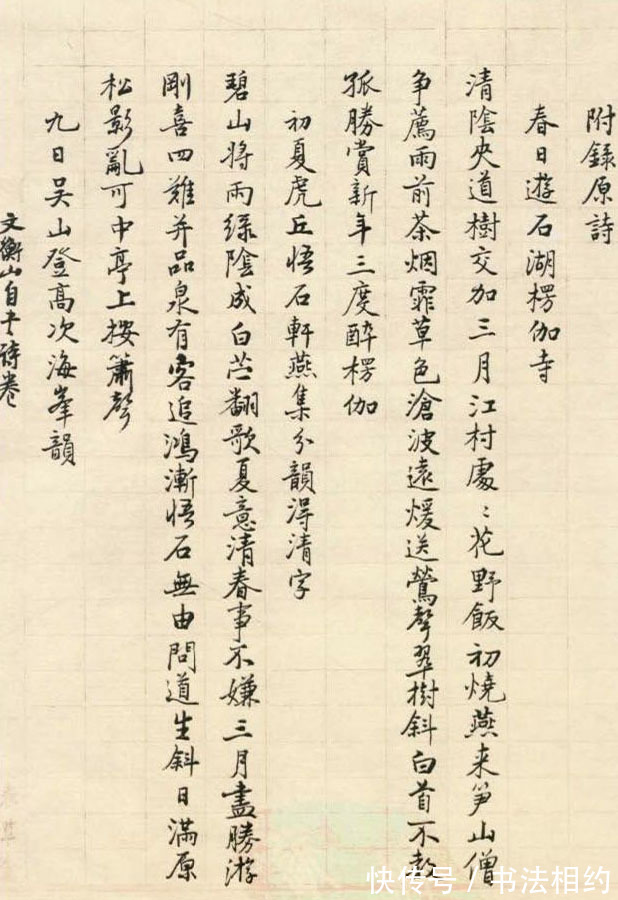 附錄原詩
春日遊石湖楞伽寺
清陰夾道樹交加三月江村處〻花野飯初燒燕来笋山僧
争薦雨前茶烟霏草色滄波遠煖送鶯聲翠樹斜白首不教
孤勝賞新年三度醉楞伽
初夏虎丘悟石軒燕集分韻得清字
碧山將雨綠陰成白苎翻歌夏意清春事不嫌三月盡勝游
剛喜四難并品泉有客追鴻漸悟石無由問道生斜日滿原
松影亂可中亭上按簫聲
九日吴山登高次海峯韻
文衡山自书詩卷
快传号 / 书法相约